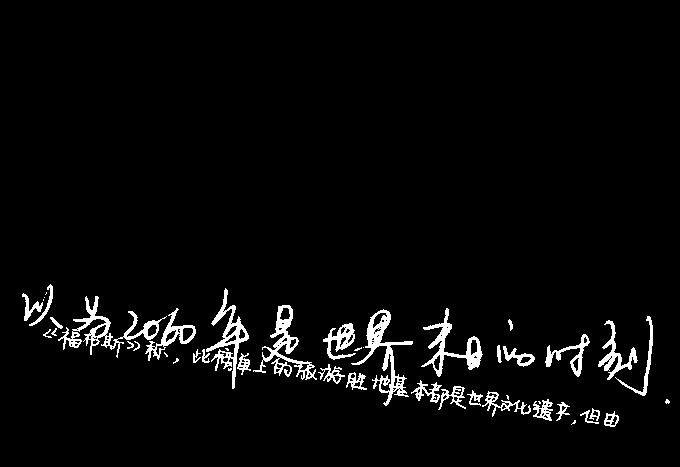 以为2060年是世界末日的时刻.
《福布斯》称，此榜单上的旅游胜地基本都是世界文化遗产，但由